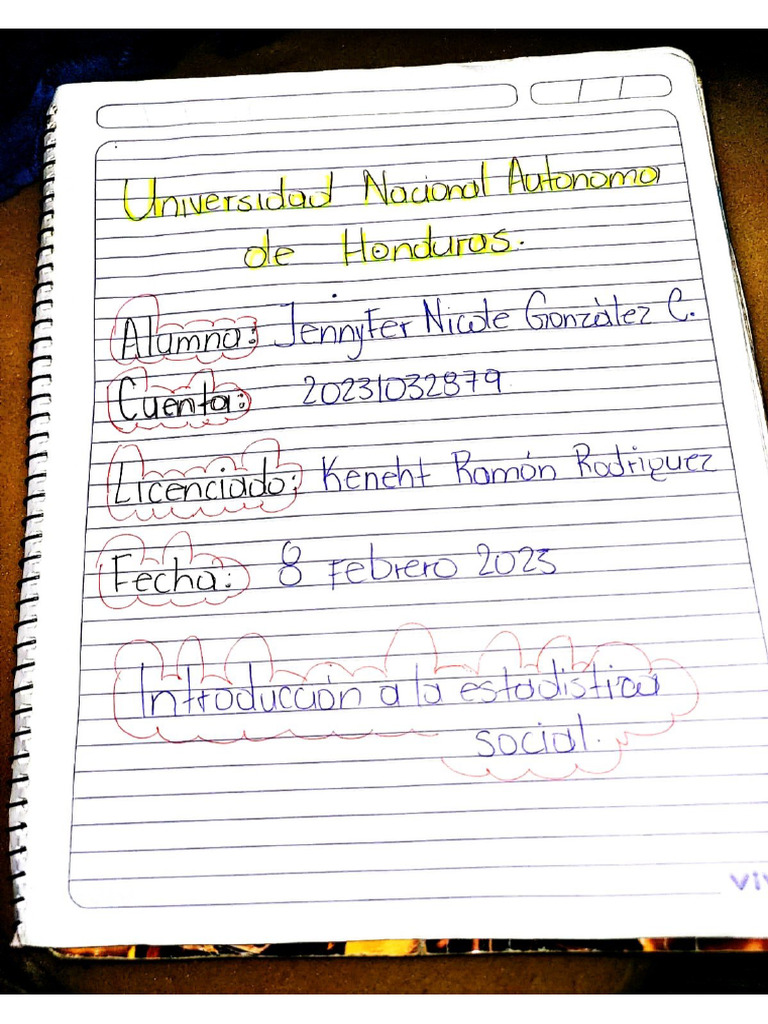 Universidad Nacional Autonoma
de Honduras.
Alumna: Jennyfer Nicole González C.
Cuenta: 20231032879
Licenciado: Keneht Ramón Rodriguez
Fecha: 8 Febrero 2023
Introducción a la estadistica
social.